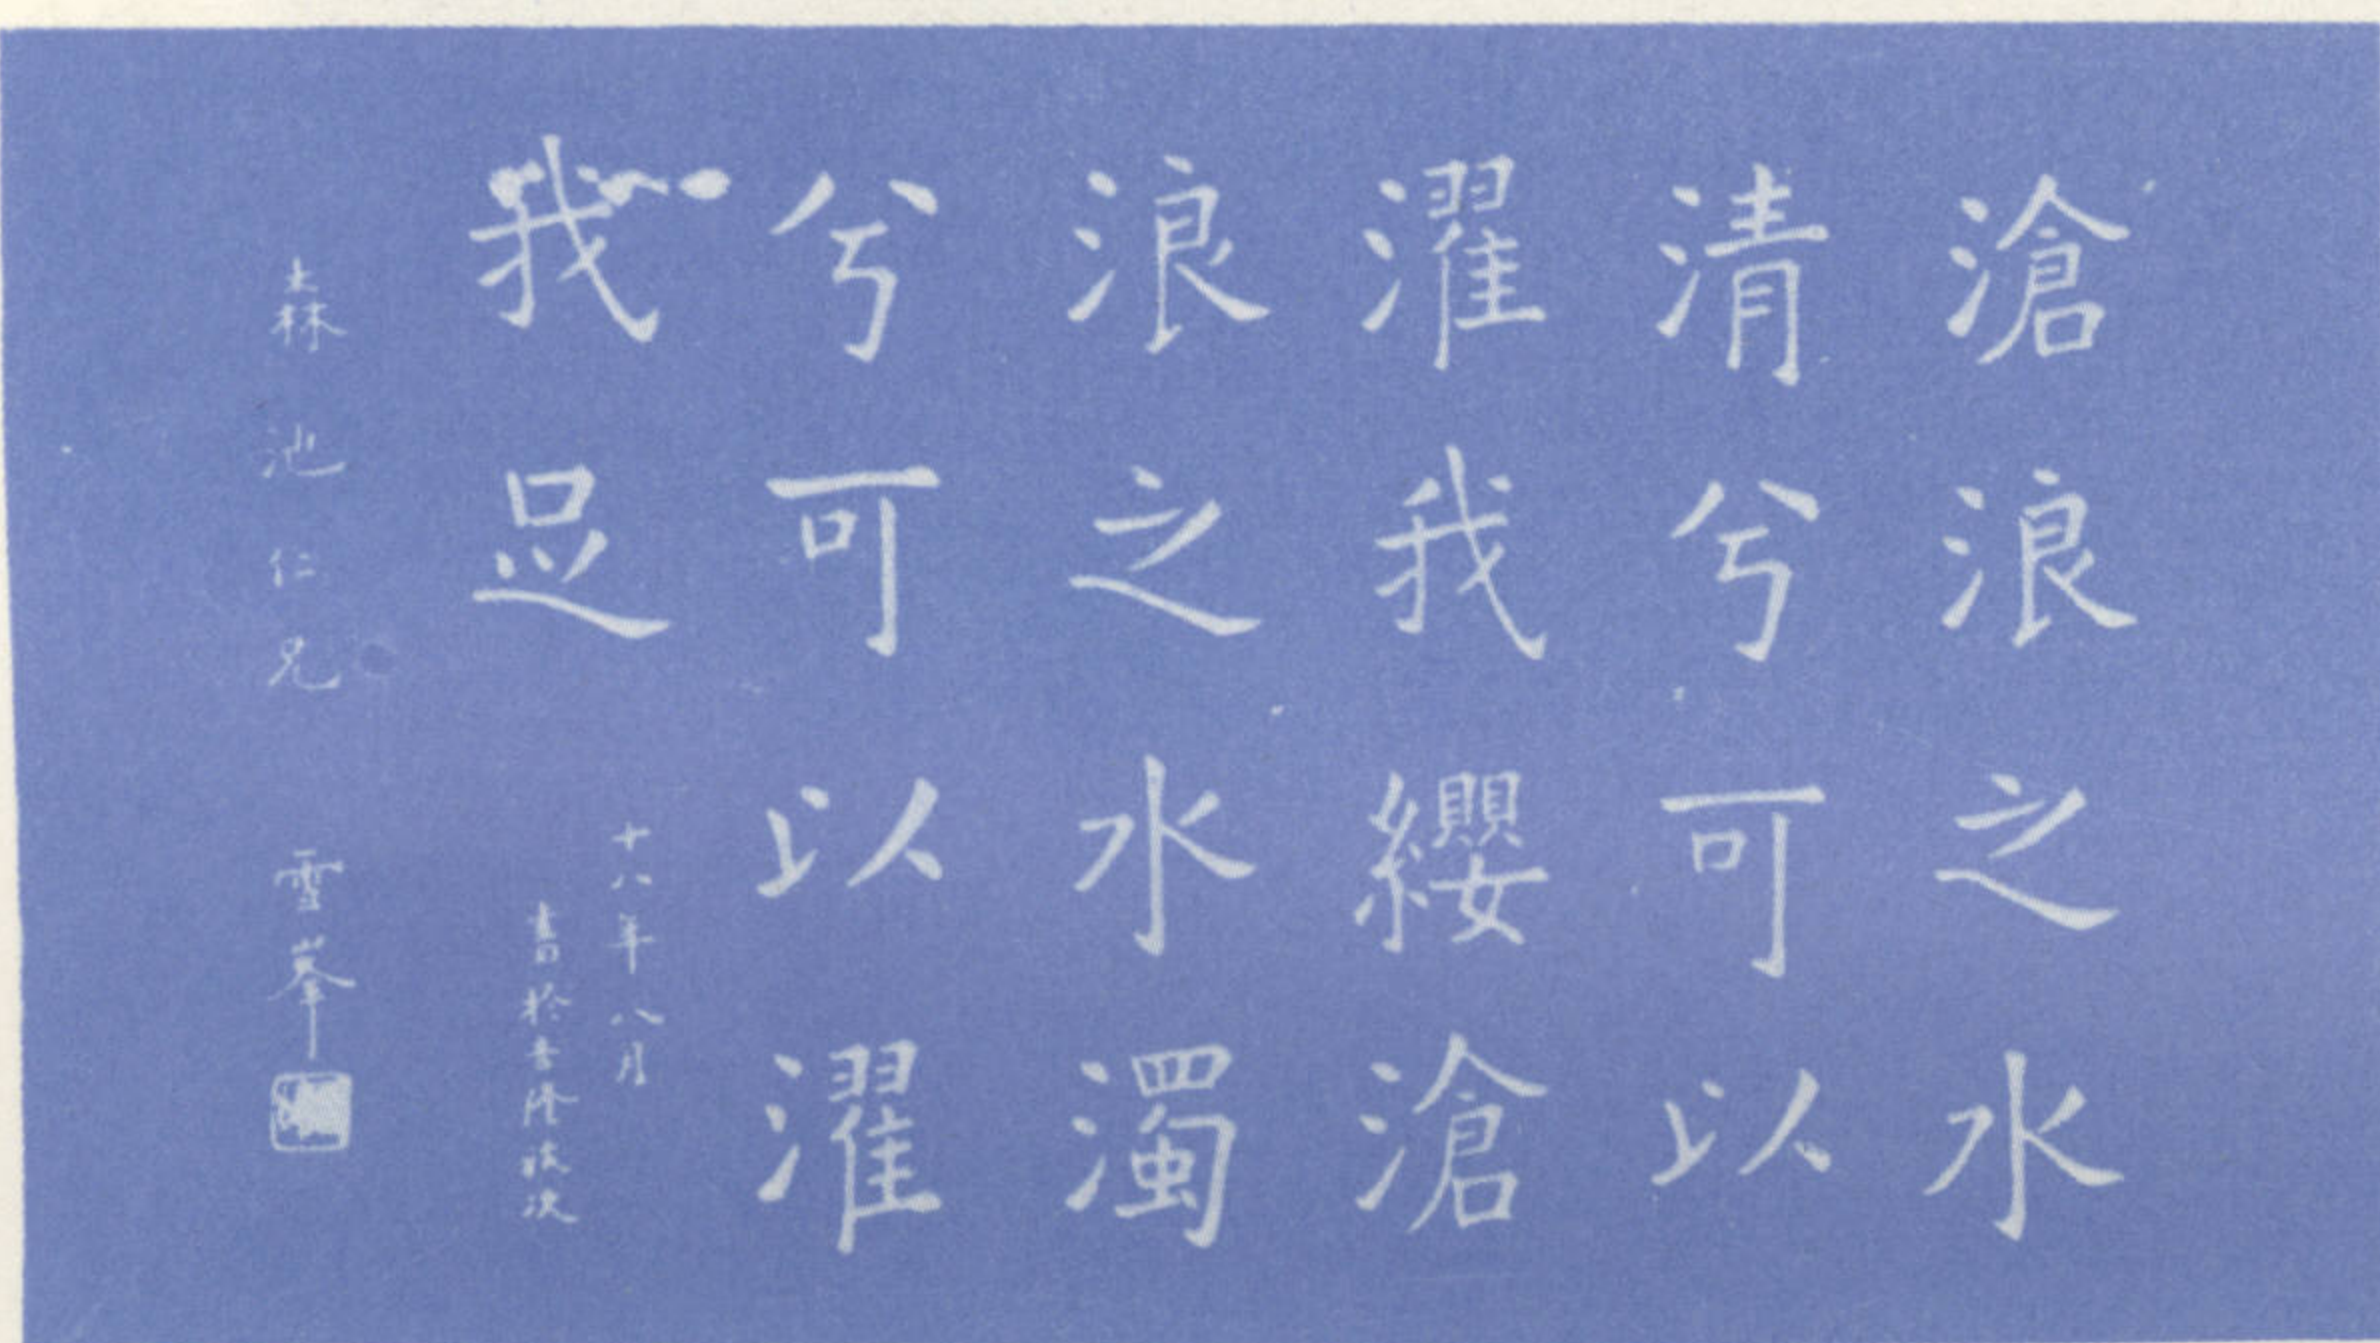 滄浪之水
清兮可以
濯我纓滄
浪之水濁
兮可以濯
我足
十八年八月
書於吉隆坡次
森池仁兄
雪峯